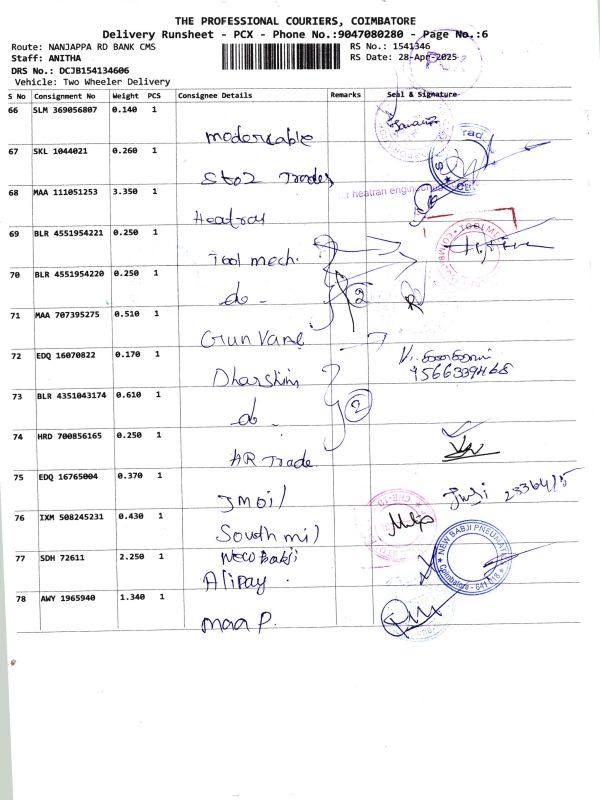 THE PROFESSIONAL COURIERS, COIMBATORE
Delivery Runsheet - PCX - Phone No.:9047080280 - Page No.:6
Route: NANJAPPA RD BANK CMS
RS No.: 1541346
Staff: ANITHA
RS Date: 28-Apr-2025
DRS No.: DCJB154134606
Vehicle: Two Wheeler Delivery
S No Consignment No Weight PCS Consignee Details Remarks Seal & Signature
66 SLM 369056807 0.140 1
67 SKL 1044021 0.260 1
Sto2 Trades
68 MAA 111051253 3.350 1
heatran engine
Heatran
69 BLR 4551954221 0.250 1
Tool mech.
70 BLR 4551954220 0.250 1
do - 2
71 MAA 707395275 0.510 1
Gun Vame
72 EDQ 16070822 0.170 1
Dharshini
73 BLR 4351043174 0.610 1
do. 2
74 HRD 700856165 0.250 1
AR Trade
75 EDQ 16765004 0.370 1
Jmoil
76 IXM 508245231 0.430 1
South mil
77 SDH 72611 2.250 1
New Babji
NEW BABJI PNEUMATI
Coimbatore - 641 018
Alipay.
78 AWY 1965940 1.340 1
maa P.